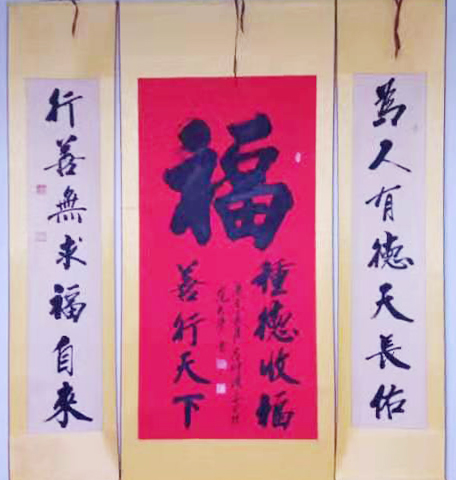 為人有德天長佑
福
種德收福
善行天下
行善無求福自来